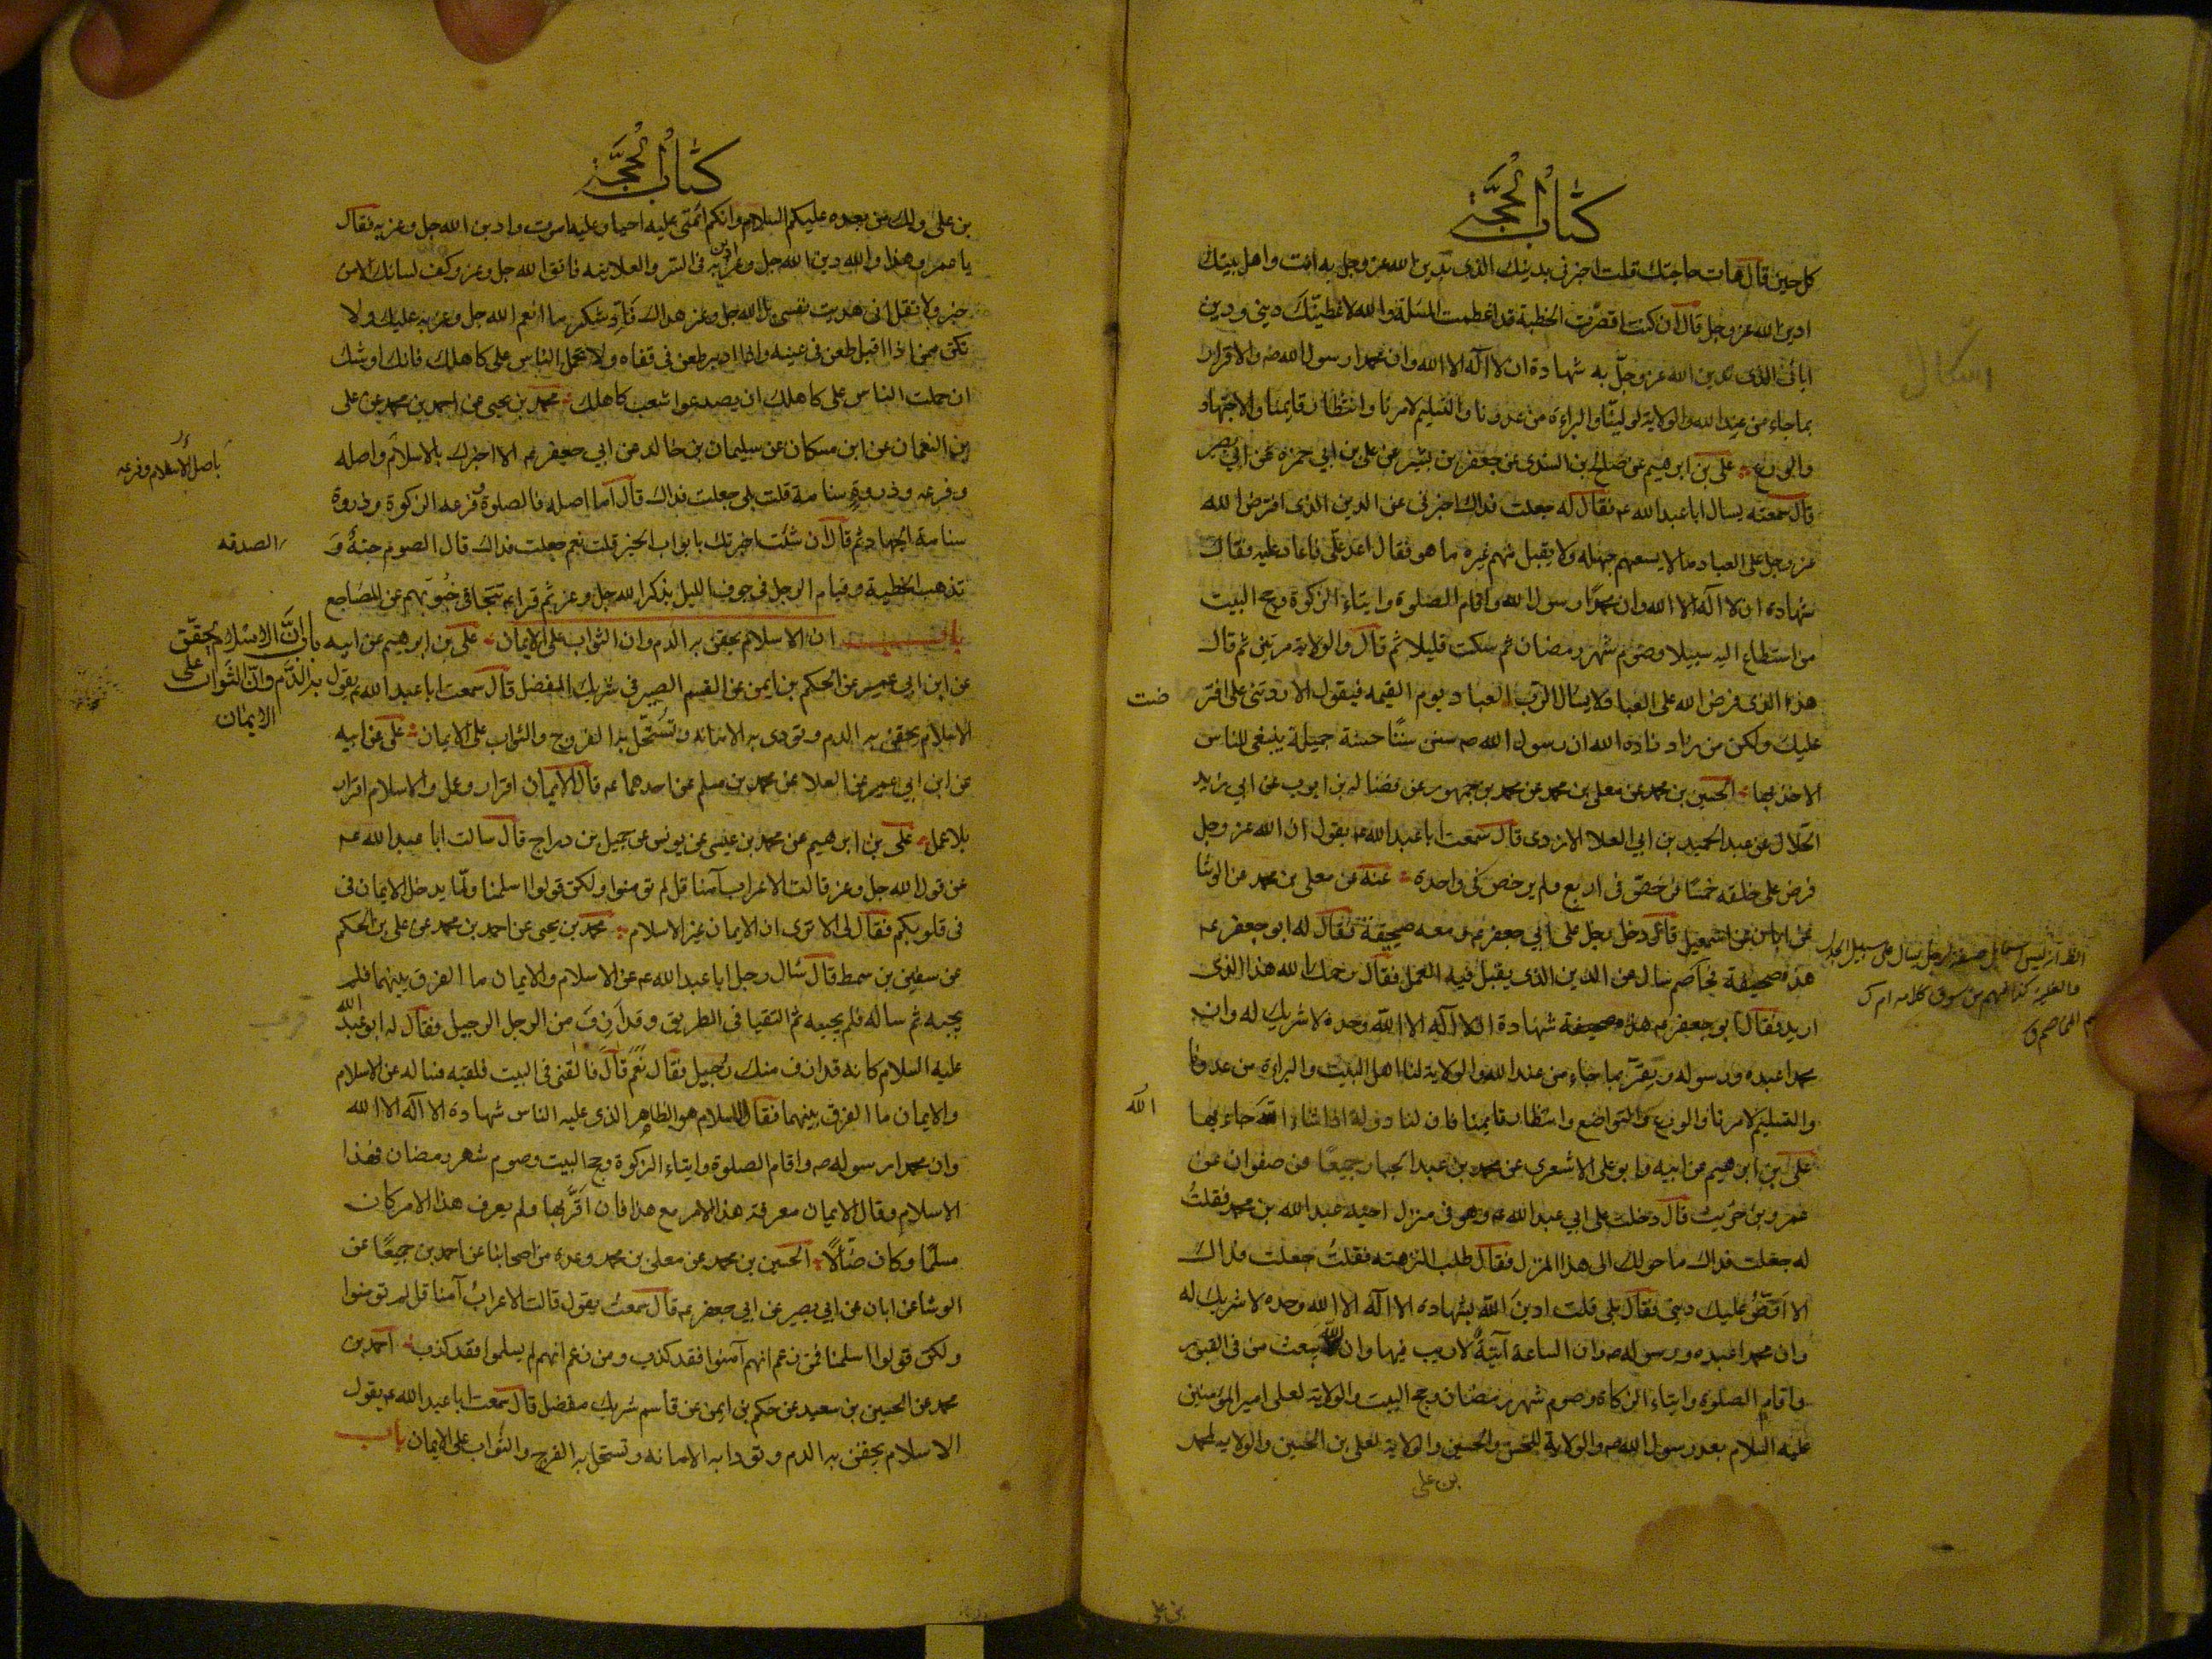 كتاب الحجة
كل حين قال هات حاجتك قلت اخبرنى بدينك الذى تدين الله عز وجل به انت واهل بيتك
ادين الله عز وجل قال ان كنت اقصرت الخطبة قد اعظمت المسئلة والله لاعطينك دينى ودين
ابائى الذى ندين الله عز وجل به شهادة ان لا اله الا الله وان محمدا رسول الله صه والاقرار
بما جاء من عند الله والولاية لولينا والبراءة من عدونا والتسليم لامرنا وانتظار قايمنا والاجتهاد
والورع علی بن ابرهيم عن صالح بن السندى عن جعفر بن بشير عن على بن ابي حمزه عن ابي بصير
قال سمعته يسال ابا عبد الله عه فقال له جعلت فداك اخبرنى عن الدين الذى افترض الله
عز وجل على العباد ما لا يسعهم جهله ولا يقبل منهم غيره ما هو فقال اعد على فاعاد عليه فقال
شهادة ان لا اله الا الله وان محمدا رسول الله واقام الصلوة وايتاء الزكوة وحج البيت
من استطاع اليه سبيلا وصوم شهر رمضان ثم سكت قليلا ثم قال والولاية مرتين ثم قال
هذا الذى فرض الله على العباد لا يسال الرب العباد يوم القيمه فيقول الا زدتنى على افتر
ضت
عليك ولكن من زاد زاده الله ان رسول الله صه سن سننا حسنة جميلة ينبغى للناس
الاخذ بها الحسين بن محمد عن معلى بن محمد عن محمد بن جمهور عن فضاله بن ايوب عن ابي زيد
الحلال عن عبد الحميد بن ابي العلا الازدى قال سمعت ابا عبد الله عه يقول ان الله عز وجل
فرض على خلقه خمسا فرخص فى اربع ولم يرخص فى واحدة عنه عن معلى بن محمد عن الوشا
عن ابان عن اسمعيل قال دخل رجل على ابي جعفر عه ومعه صحيفة فقال له ابو جعفر عه
هذه صحيفة مخاصم سال عن الدين الذى يقبل فيه العمل فقال رحمك الله هذا الذى
اريد فقال ابو جعفر عه شهادة ان لا اله الا الله وحده لا شريك له وان
محمدا عبده ورسوله وتقر بما جاء من عند الله والولاية لنا اهل البيت والبراءة من عدونا
والتسليم لامرنا والورع والتواضع وانتظار قايمنا فان لنا دولة اذا شاء الله جاء بها
الله
على بن ابرهيم عن ابيه وابو على الاشعرى عن محمد بن عبد الجبار جميعا عن صفوان عن
عمرو بن حريث قال دخلت على ابي عبد الله عه وهو فى منزل اخيه عبد الله بن محمد فقلت
له جعلت فداك ما حولك الى هذا المنزل فقال طلب النزهته فقلت جعلت فداك
الا اقص عليك دينى فقال بلى قلت ادين الله بشهادة الا اله الا الله وحده لا شريك له
وان محمدا عبده ورسوله صه وان الساعة آتية لا ريب فيها وان الله يبعث من فى القبور
واقام الصلوة وايتاء الزكاة وصوم شهر رمضان وحج البيت والولاية لعلى امير المؤمنين
عليه السلام بعد رسول الله صه والولاية للحسن والحسين والولاية لعلى بن الحسين والولاية لمحمد
بن على
كتاب الحجة
بن على ولك من بعده عليكم السلام وانكم ائمتى عليه احيا وعليه اموت وادين الله جل وعز به فقال
يا عمرو هذا والله دين الله جل وعز فى السر والعلانيه فاتق الله جل وعز وكف لسانك الا من
خير ولا تقل انى هديت نفسى بل الله جل وعز هداك فاد شكر ما انعم الله جل وعز به عليك ولا
تكن ممن اذا اقبل طعن فى عينه واذا ادبر طعن فى قفاه ولا تحمل الناس على كاهلك فانك اوشك
ان حملت الناس على كاهلك ان يصدعوا شعب كاهلك محمد بن يحيى عن احمد بن محمد عن على
بن النعمان عن ابن مسكان عن سليمان بن خالد عن ابي جعفر عه الا اخبرك بالاسلام واصله
باصل الاسلام وفرعه
وفرعه وذروة سنامه قلت بلى جعلت فداك قال اما اصله فالصلوة وفرعه الزكوة وذروة
سنامه الجهاد ثم قال ان شئت اخبرتك بابواب الخير قلت نعم جعلت فداك قال الصوم جنة و
الصدقه
تذهب الخطيئة وقيام الرجل فى جوف الليل بذكر الله جل وعز ثم قرا عه تتجافى جنوبهم عن المضاجع
باب ان الاسلام يحقن به الدم وان الثواب على الايمان على بن ابرهيم عن ابيه
باب ان الاسلام يحقن
به الدم وان الثواب على
الايمان
عن ابن ابي عمير عن الحكم بن ايمن عن القسم الصيرفى شريك المفضل قال سمعت ابا عبد الله عه يقول
الاسلام يحقن به الدم وتودى به الامانه وتستحل به الفروج والثواب على الايمان على عن ابيه
عن ابن ابي عمير عن العلا عن محمد بن مسلم عن احدهما عه قال الايمان اقرار وعمل والاسلام اقرار
بلا عمل على بن ابرهيم عن محمد بن عيسى عن يونس عن جميل بن دراج قال سالت ابا عبد الله عه
عن قول الله جل وعز قالت الاعراب آمنا قل لم تومنوا ولكن قولوا اسلمنا ولما يدخل الايمان فى
فى قلوبكم فقال لى الا ترى ان الايمان غير الاسلام محمد بن يحيى عن احمد بن محمد عن على بن الحكم
عن سفين بن سمط قال سال رجل ابا عبد الله عه عن الاسلام والايمان ما الفرق بينهما فلم
يجبه ثم ساله فلم يجبه ثم التقيا فى الطريق وقد ازف من الرجل الرحيل فقال له ابو عبد الله
عليه السلام كانه قد ازف منك رحيل فقال نعم قال فالقنى فى البيت فلقيه فساله عن الاسلام
والايمان ما الفرق بينهما فقال الاسلام هو الظاهر الذى عليه الناس شهادة الا اله الا الله
وان محمدا رسوله صه واقام الصلوة وايتاء الزكوة وحج البيت وصوم شهر رمضان فهذا
الاسلام وقال الايمان معرفة هذا الامر مع هذا فان اقر بها ولم يعرف هذا الامر كان
مسلما وكان ضالا الحسين بن محمد عن معلى بن محمد وعده من اصحابنا عن احمد بن جميعا عن
الوشا عن ابان عن ابي بصير عن ابي جعفر عه قال سمعته يقول قالت الاعراب آمنا قل لم تومنوا
ولكن قولوا اسلمنا فمن زعم انهم آمنوا فقد كذب ومن زعم انهم لم يسلموا فقد كذب احمد بن
محمد عن الحسين بن سعيد عن حكم بن ايمن عن قاسم شريك مفضل قال سمعت ابا عبد الله عه يقول
الاسلام يحقن به الدم وتودا به الامانه وتستحل به الفرج والثواب على الايمان باب